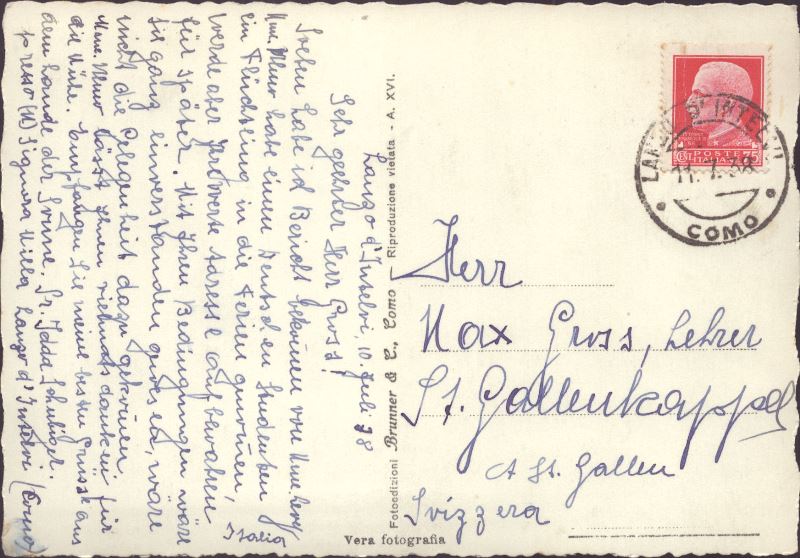 Lanzo d'Intelvi, 10. Juli 38
Sehr geehrter Herr Gross!
Soeben habe ich Bericht bekommen von Mme.
Mme. habe einen deutschen Studenten
ein Flüchtling in die Ferien genommen,
werde aber Ihre werte Adresse aufbewahren
für später. Mit Ihren Bedingungen wäre
sie ganz einverstanden gewesen, wäre
nicht die Gelegenheit dazu gekommen.
Mme. lässt Ihnen vielmals danken für
die Mühe. Empfangen Sie meine besten Grüsse aus
dem Lande der Sonne. Sr. Idda
presso Signora Lanzo d'Intelvi (Como)
Italia
Fotoedizioni Brunner & C., Como — Riproduzione vietata - A. XVI.
Vera fotografia
POSTE ITALIANE
75
LANZO D'INTELVI
11. 7. 38
COMO
Herr
Max Gross, Lehrer
St. Gallenkappel
St. Gallen
Svizzera